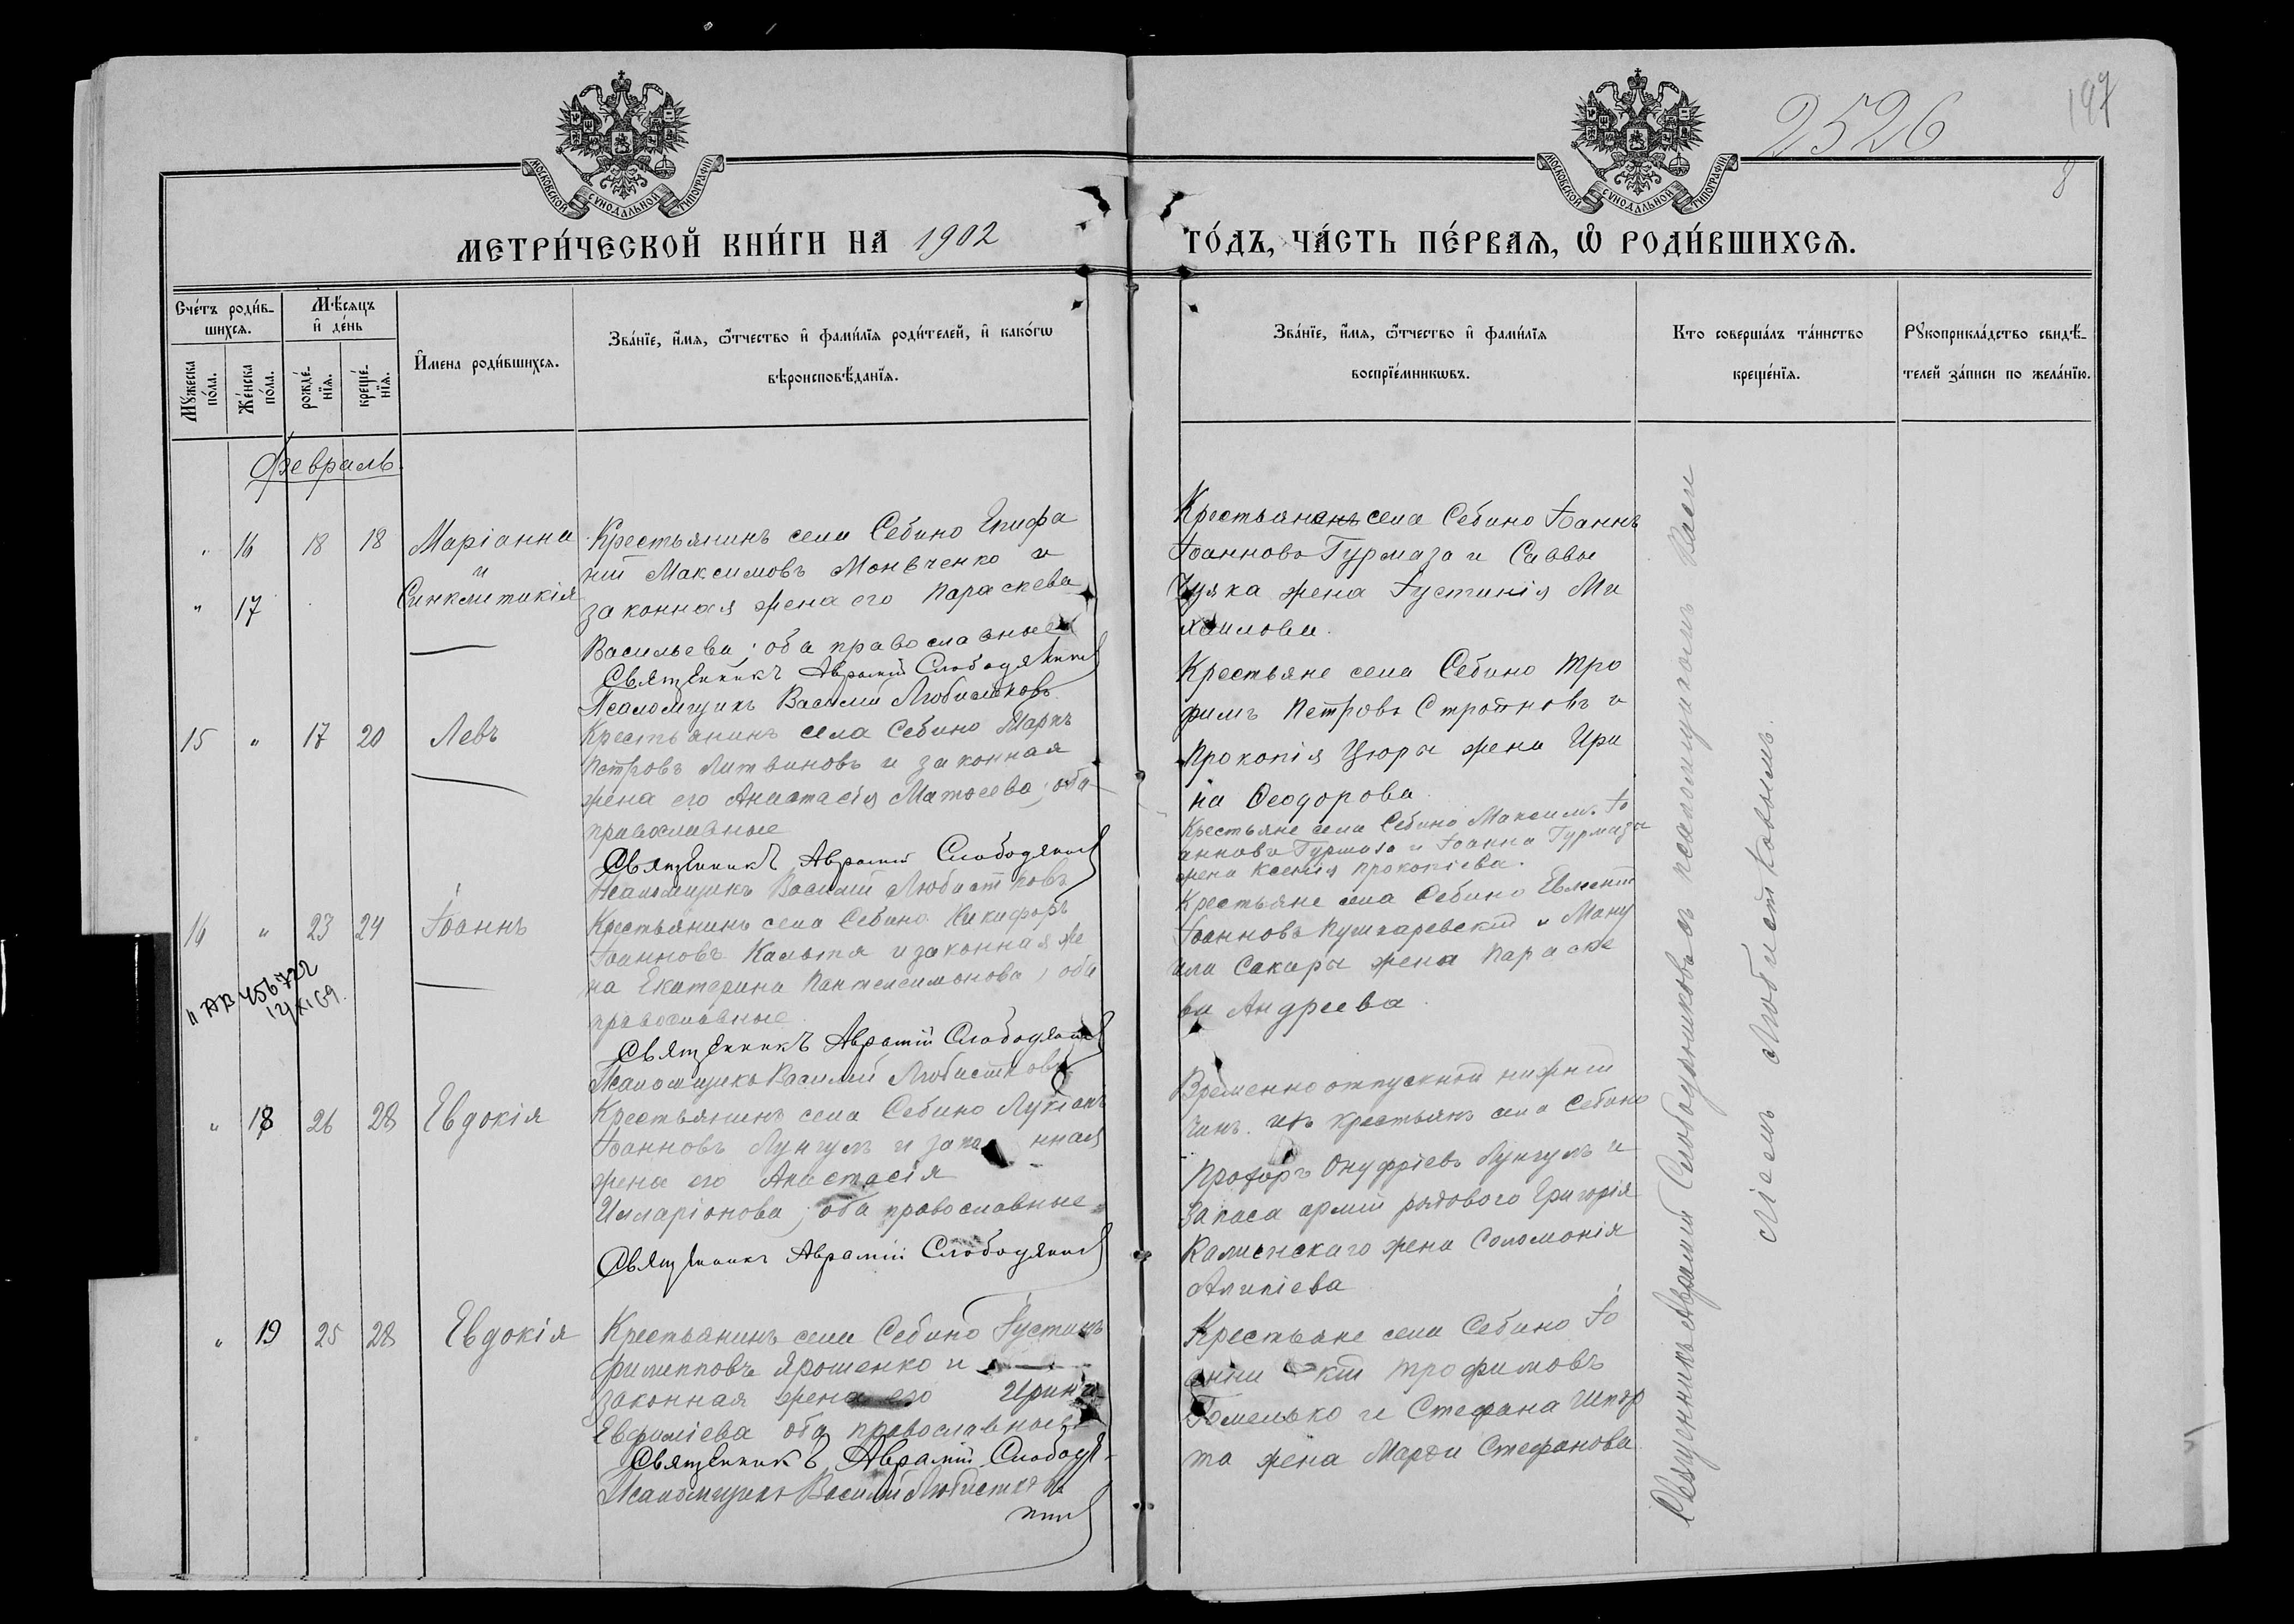 2526
197
8
МОСКОВСКОЙ СѴНОДАЛЬНОЙ ТИПОГРАФІИ
МОСКОВСКОЙ СѴНОДАЛЬНОЙ ТИПОГРАФІИ
МЕТРИ́ЧЕСКОЙ КНИ́ГИ НА 1902
ГО́ДЪ, ЧА́СТЬ ПЕ́РВАЯ, Ѽ РОДИ́ВШИХСЯ.
Сче́тъ роди́в-
шихся.
Мѣ́сяцъ
и҆ де́нь
Мꙋ́жеска по́ла.
Же́нска по́ла.
рожде́-нїя.
креще́-нїя.
И҆мена роди́вшихся.
Зва́нїе, и҆́мя, ѻ҆́тчество и҆ фами́лїя роди́телей, и҆ како́гѡ
вѣроисповѣ́данїя.
Зва́нїе, и҆́мя, ѻ҆́тчество и҆ фами́лїя
воспрїе́мникѡвъ.
Кто соверша́лъ та́инство
креще́нїя.
Рꙋкоприкла́дство свидѣ́-
телей за́писи по жела́нїю.
Февраль
" 16 18 18 Маріанна
и
" 17 Синклитикія
Крестьянинъ села Себино Епифа
ній Максимовъ Монвченко и
законная жена его Параскева
Васильева; оба православные
Священникъ Аврамій Слободяник
Псаломщикъ Василій Любистковъ
Крестьянинъ села Себино Іоаннъ
Іоанновъ Гурмаза и Саввы
Чуяка жена Іустинія Ми
хаилова.
15 " 17 20 Левъ
Крестьянинъ села Себино Маркъ
Петровъ Литвиновъ и законная
жена его Анастасія Матѳеева; оба
православные
Священникъ Аврамій Слободяник
Псаломщикъ Василій Любистковъ
Крестьяне села Себино Тро
фимъ Петровъ Стройновъ и
Прокопія Цюры жена Ири
на Ѳеодорова
Крестьяне села Себино Максим. Іо
анновъ Гурмаза и Іоанна Гурмазы
жена Ксенія Прокопіева.
16 " 23 24 Іоаннъ
Крестьянинъ села Себино Никифоръ
Іоанновъ Калытя и законная же
на Екатерина Пантелеимонова; оба
православные
Священникъ Аврамій Слободяник
Псаломщикъ Василій Любистковъ
Крестьяне села Себино
Іоанновъ Пушкаревскій и Ману
ила Сакары жена Параске
ва Андреева
" АВ 456722
" 18 26 28 Евдокія
Крестьянинъ села Себино Лукіанъ
Іоанновъ Лунгулъ и зако нная
жена его Анастасія
Илларіонова; оба православные
Священникъ Аврамій Слободяник
Временно отпускной нижній
чинъ изъ крестьянъ села Себино
Прохоръ Онуфріевъ Лунгулъ и
запаса арміи рядового Григорія
Калиенскаго жена Соломонія
Алипіева
" 19 25 28 Евдокія
Крестьянинъ села Себино Іустинъ
Филипповъ Ярошенко и
законная жена его Ирина
Евфиміева оба православные
Священникъ Аврамій Слободя-
Псаломщикъ Василій Любистковъ
ник
Крестьяне села Себино Іо
Трофимовъ
Гомелько и Стефана
та жена Марѳа Стефанова
Священникъ Аврамій Слободяниковъ съ псаломщикомъ Васи
ліемъ Любистковымъ.